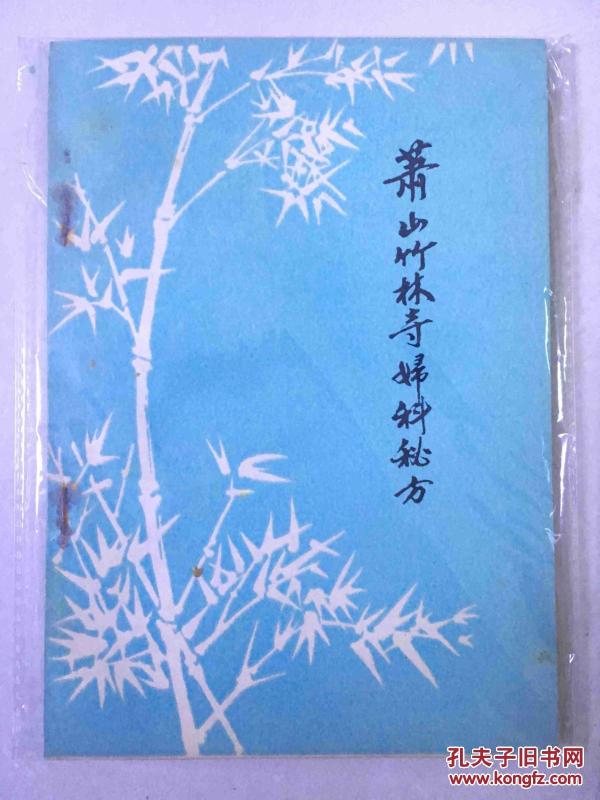 蕭山竹林寺婦科秘方
孔夫子旧书网
www.kongfz.com